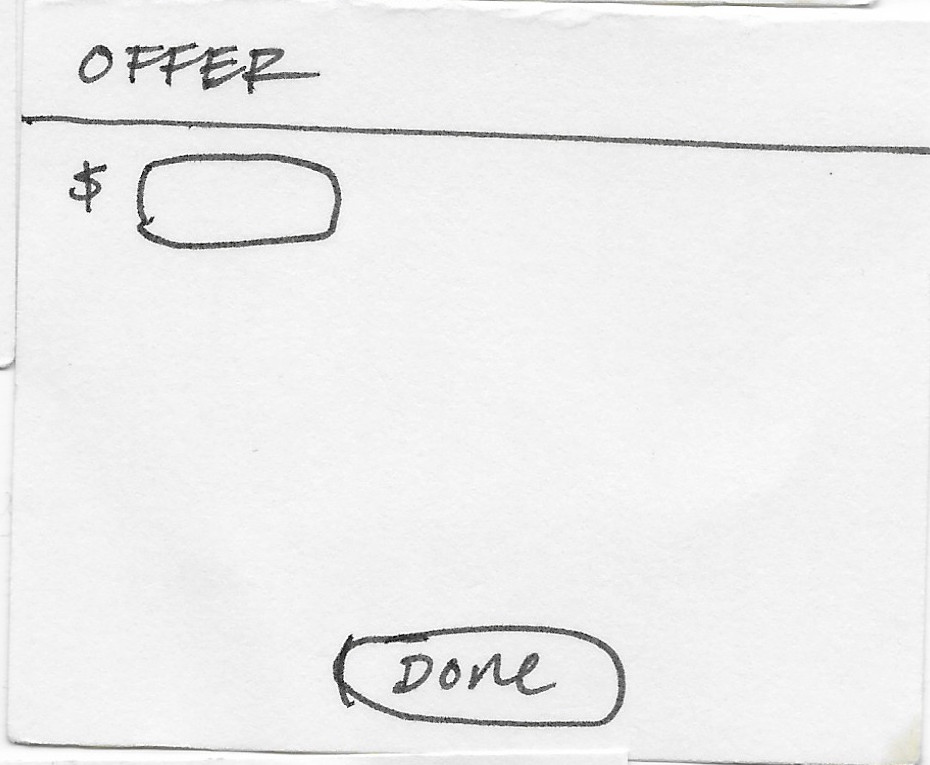 OFFER
$
Done